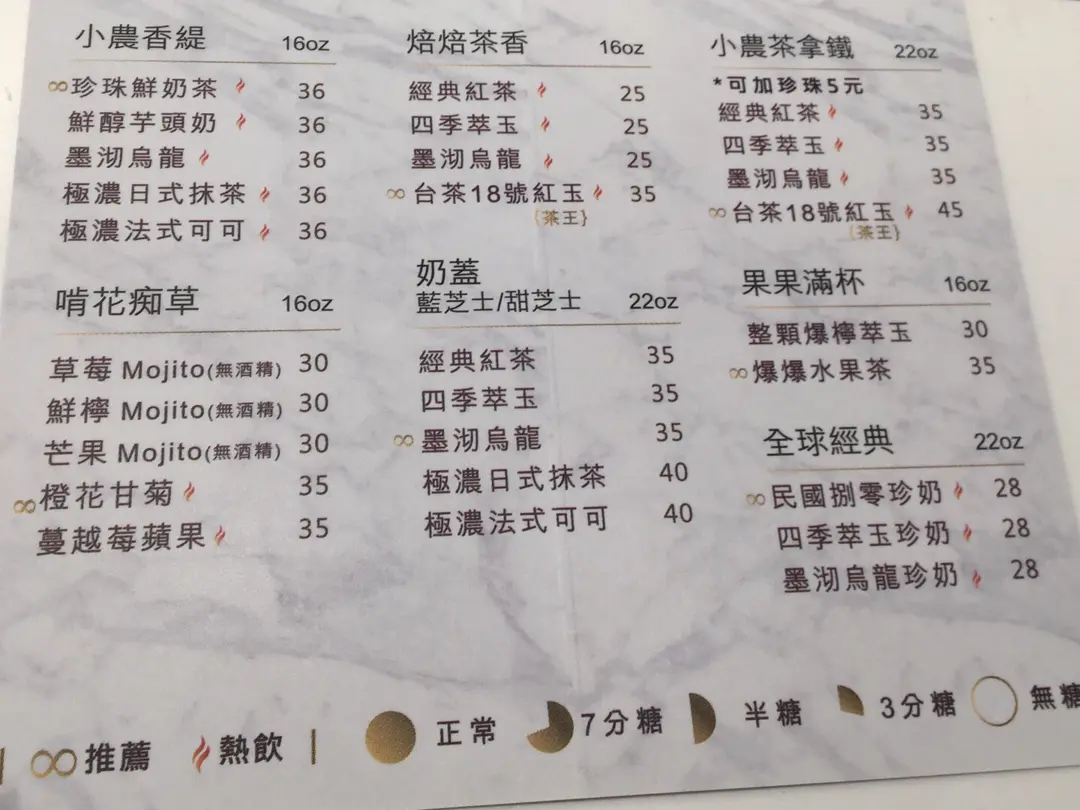 小農香緹 16oz
∞珍珠鮮奶茶 36
鮮醇芋頭奶 36
墨沏烏龍 36
極濃日式抹茶 36
極濃法式可可 36
焙焙茶香 16oz
經典紅茶 25
四季萃玉 25
墨沏烏龍 25
∞台茶18號紅玉 35
{茶王}
小農茶拿鐵 22oz
*可加珍珠5元
經典紅茶 35
四季萃玉 35
墨沏烏龍 35
∞台茶18號紅玉 45
{茶王}
啃花痴草 16oz
草莓 Mojito(無酒精) 30
鮮檸 Mojito(無酒精) 30
芒果 Mojito(無酒精) 30
∞橙花甘菊 35
蔓越莓蘋果 35
奶蓋
藍芝士/甜芝士 22oz
經典紅茶 35
四季萃玉 35
∞墨沏烏龍 35
極濃日式抹茶 40
極濃法式可可 40
果果滿杯 16oz
整顆爆檸萃玉 30
∞爆爆水果茶 35
全球經典 22oz
∞民國捌零珍奶 28
四季萃玉珍奶 28
墨沏烏龍珍奶 28
∞推薦 熱飲 | 正常 7分糖 半糖 3分糖 無糖